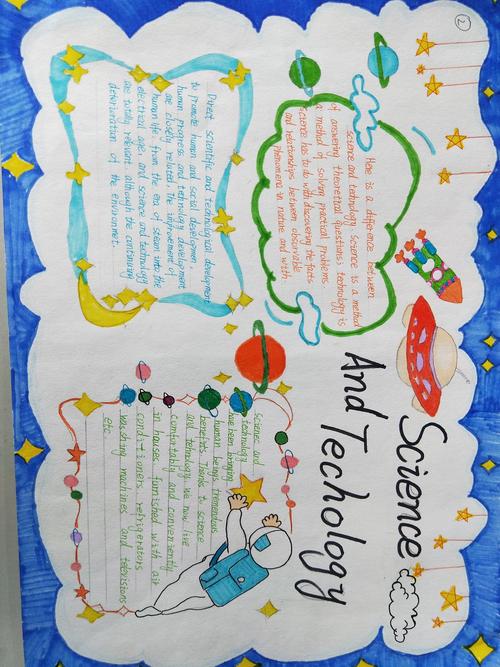 2
Science
And Techology
Here is a difference between
science and technology. Science is a method
of answering theoretical questions; technology is
a method of solving practical problems.
Science has to do with discovering the facts
and relationships between observable
phenomena in nature and with
Direct scientific and technological development
to promote human and social developmen.
human progress and technology development
are closely related. the improvement of
human life, from the end of steam into the
electrical age, and science and technology
are totally relevant, although the continuing
deterioration of the environment.
Science and
technology
have been bringing
human beings tremendous
benefits. Thanks to science
and technology we now live
comfortably and conveniently
in houses furnished with air
conditioners, refrigerators
washing machines and televisions
etc